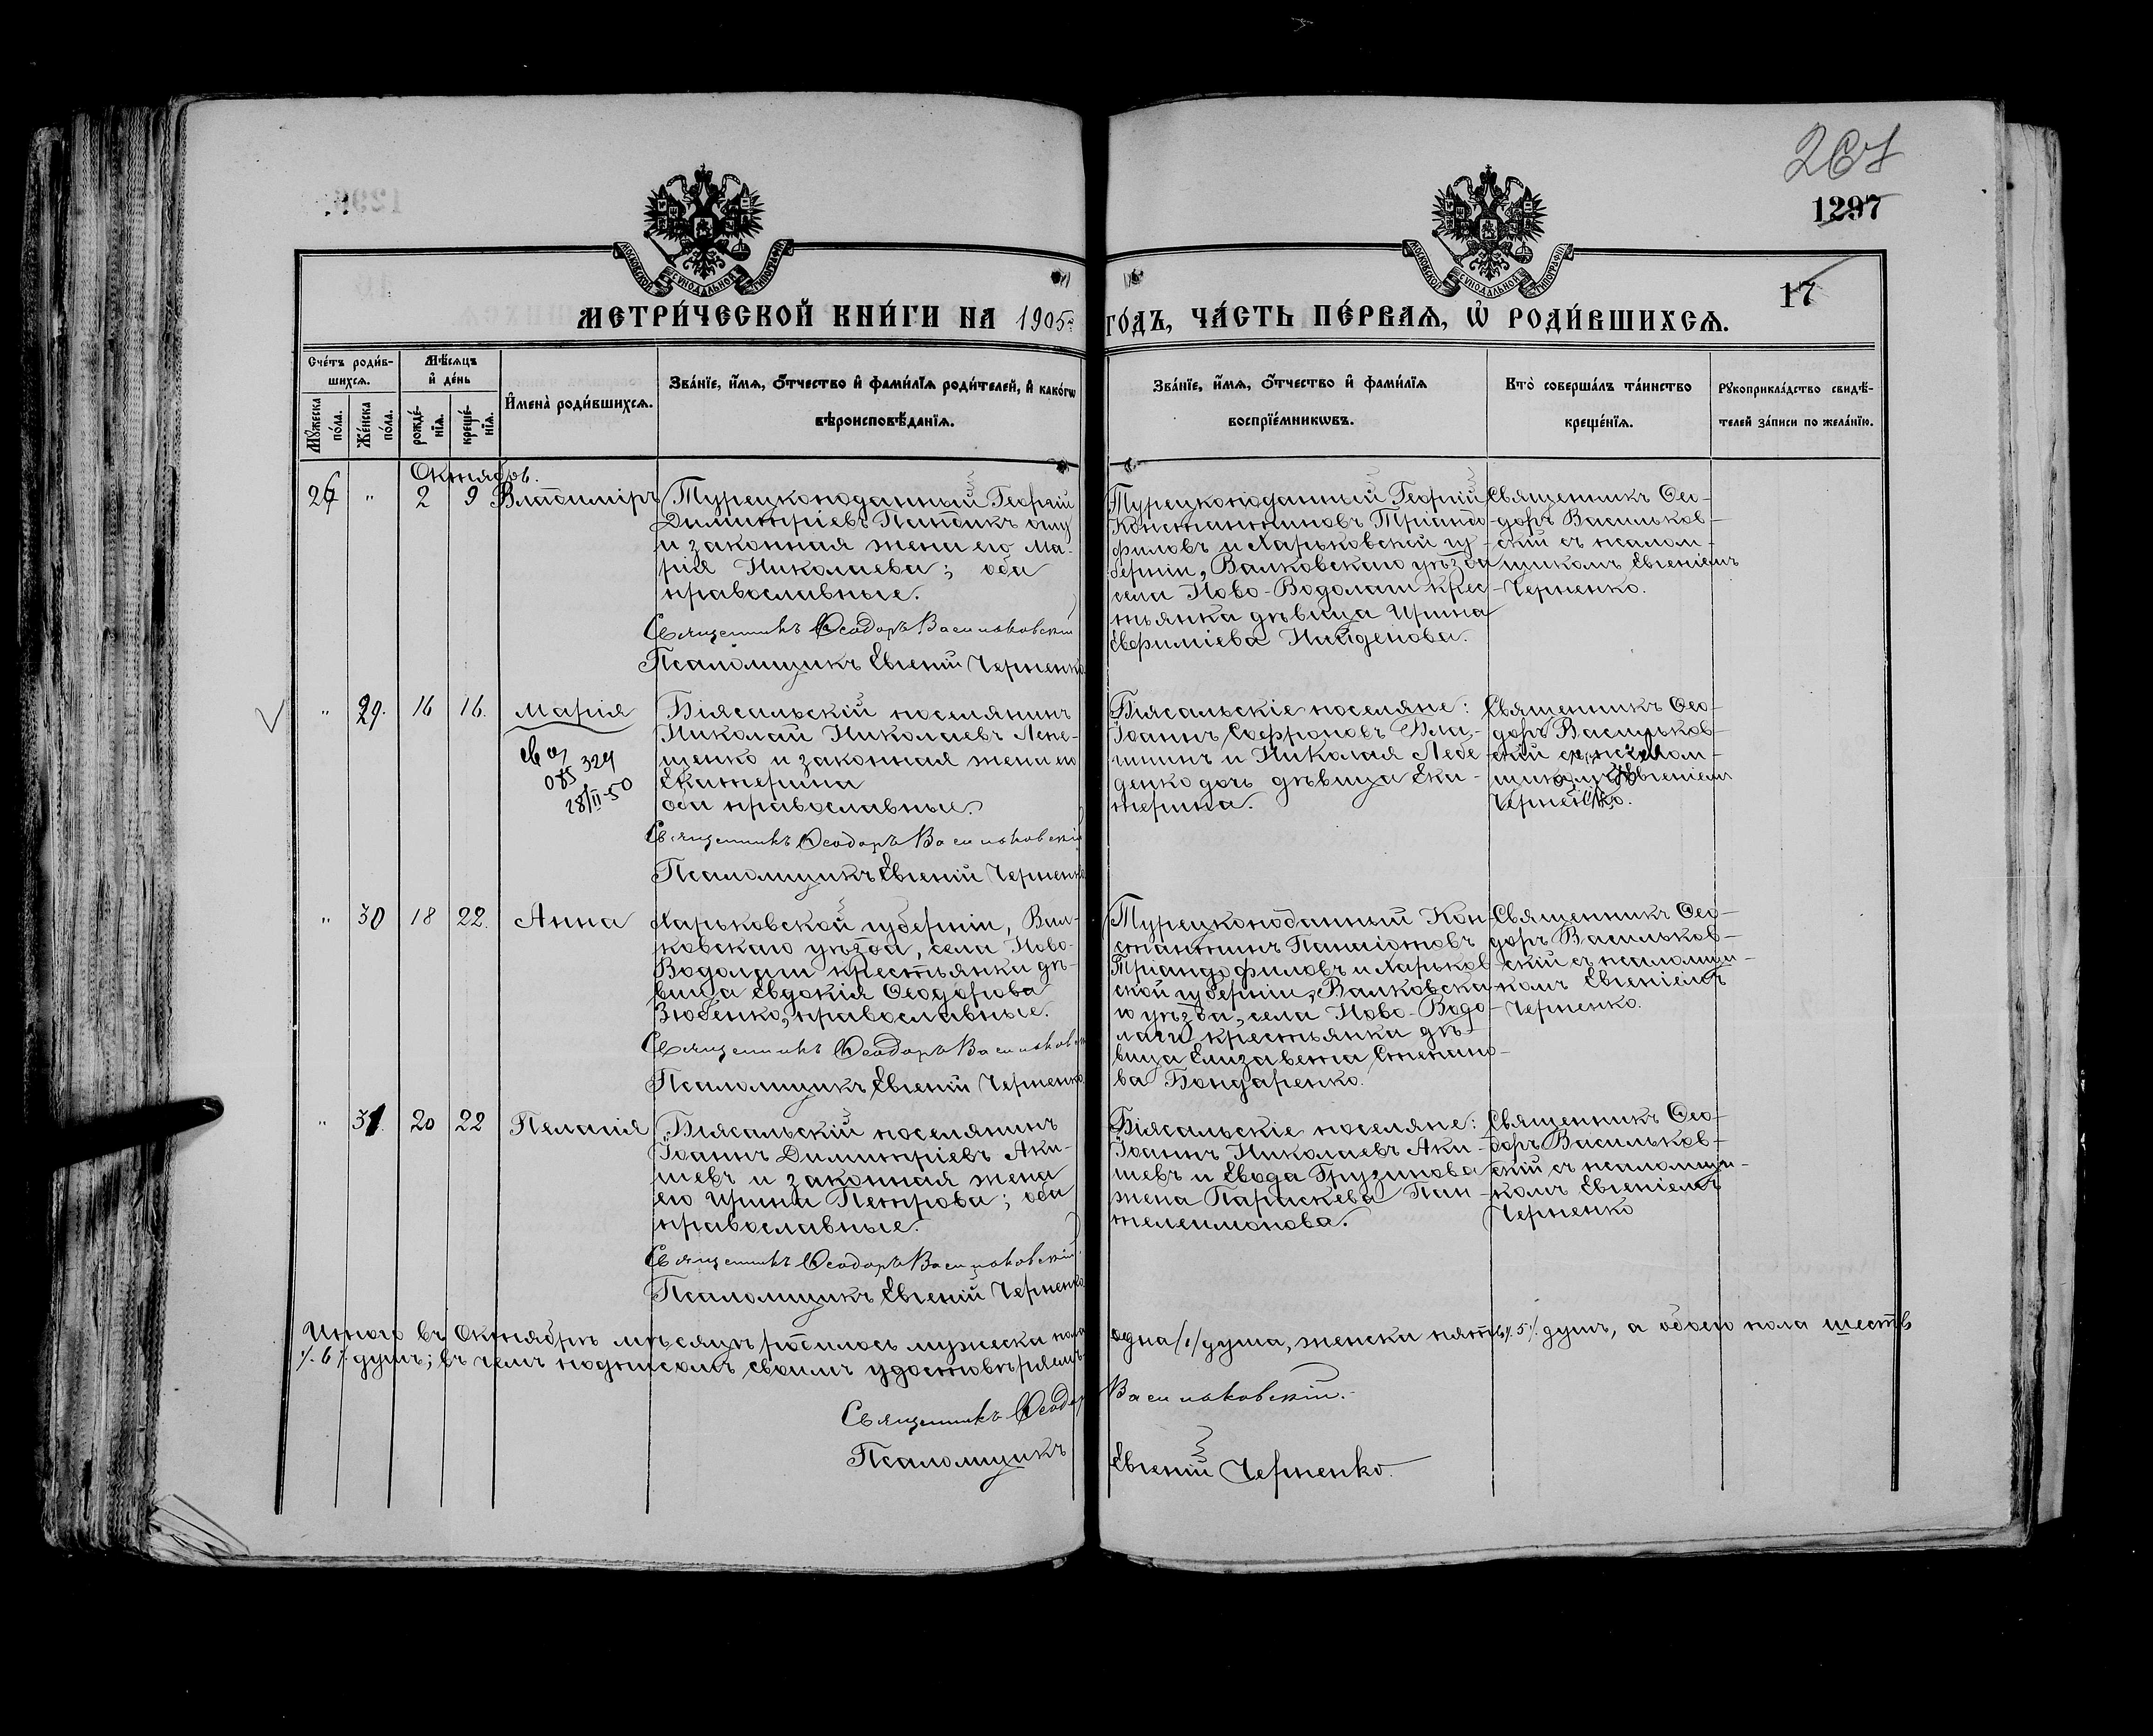 267
1297
17
МОСКОВСКОЙ СѴНОДАЛЬНОЙ ТИПОГРАФІИ
МОСКОВСКОЙ СѴНОДАЛЬНОЙ ТИПОГРАФІИ
МЕТРИ́ЧЕСКОЙ КНИ́ГИ НА 1905 г.
ГО́ДЪ, ЧА́СТЬ ПЕ́РВАѦ, Ѡ҆ РОДИ́ВШИХСѦ.
Сче́тъ роди́в-
шихсѧ.
Мꙋ́жеска по́ла.
Же́нска по́ла.
Мѣ́сѧцъ
и҆ де́нь
рожде́-
нїѧ.
креще́-
нїѧ.
И҆мена̀ роди́вшихсѧ.
Зва́нїе, и҆́мѧ, ѻ҆́тчество и҆ фами́лїѧ роди́телей, и҆ како́гѡ
вѣроисповѣ́данїѧ.
Зва́нїе, и҆́мѧ, ѻ҆́тчество и҆ фами́лїѧ
воспрїе́мникѡвъ.
Кто̀ соверша́лъ та́инство
креще́нїѧ.
Рꙋкоприкла́дство свидѣ́-
телей за́писи по жела́нїю.
Октябрь.
26 " 2 9 Владиміръ
Турецкоподанный Георгій
Димитріевъ
и законная жена его Ма-
рія Николаева; оба
православные.
Священникъ Ѳеодоръ Васильковскій
Псаломщикъ Евгеній Черненко
Турецкоподанный Георгій
Константиновъ Тріандо-
филовъ и Харьковской гу-
берніи, Валковскаго уѣзда
села Ново-Водолаги крес-
тьянка дѣвица Ирина
Евфиміева Найденова.
Священникъ Ѳео-
доръ Васильков-
скій съ псалом-
щикомъ Евгеніемъ
Черненко.
" 29. 16 16. Марія
324
28/II-50
Біясальскій поселянинъ
Николай Николаевъ Лепе-
щенко и законная жена его
Екатерина
оба православные
Священникъ Ѳеодоръ Васильковскій
Псаломщикъ Евгеній Черненко
Біясальскіе поселяне:
Іоаннъ Софроновъ
и Николая Лебе-
денко дочь дѣвица Ека-
терина.
Священникъ Ѳео-
доръ Васильков-
скій съ псалом-
щикомъ Евгеніемъ
Черненко.
" 30 18 22. Анна
Харьковской губерніи, Вал-
ковскаго уѣзда, села Ново-
Водолаги крестьянка дѣ-
вица Евдокія Ѳеодорова
Зюбенко, православные.
Священникъ Ѳеодоръ Васильковскій
Псаломщикъ Евгеній Черненко.
Турецкоподанный Кон-
стантинъ Панаіотовъ
Тріандофиловъ и Харьков-
ской губерніи, Валковска-
го уѣзда, села Ново-Водо-
лаги крестьянка дѣ-
вица Елизавета Степано-
ва Бондаренко.
Священникъ Ѳео-
доръ Васильков-
скій съ псаломщи-
комъ Евгеніемъ
Черненко.
" 31. 20 22 Пелагія
Біясальскій поселянинъ
Іоаннъ Димитріевъ Аки-
шевъ и законная жена
его Ирина Петрова; оба
православные.
Священникъ Ѳеодоръ Васильковскій.
Псаломщикъ Евгеній Черненко
Біясальскіе поселяне:
Іоаннъ Николаевъ Аки-
шевъ и Евода Грузинова
жена Параскева Пан-
телеимонова.
Священникъ Ѳео-
доръ Васильков-
скій съ псаломщи-
комъ Евгеніемъ
Черненко
Итого въ Октябрѣ мѣсяцѣ родилось мужеска пола одна /1/ душа, женска пять /.5/. душъ, а обоего пола шесть
/.6/. душъ; въ чемъ подписомъ своимъ удостовѣряемъ.
Священникъ Ѳеодоръ Васильковскій.
Псаломщикъ Евгеній Черненко.